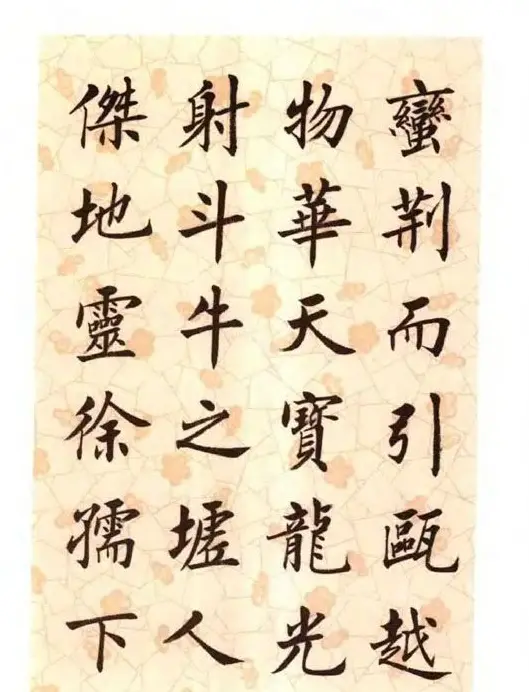 蠻荆而引甌越
物華天寶龍光
射斗牛之墟人
傑地靈徐孺下